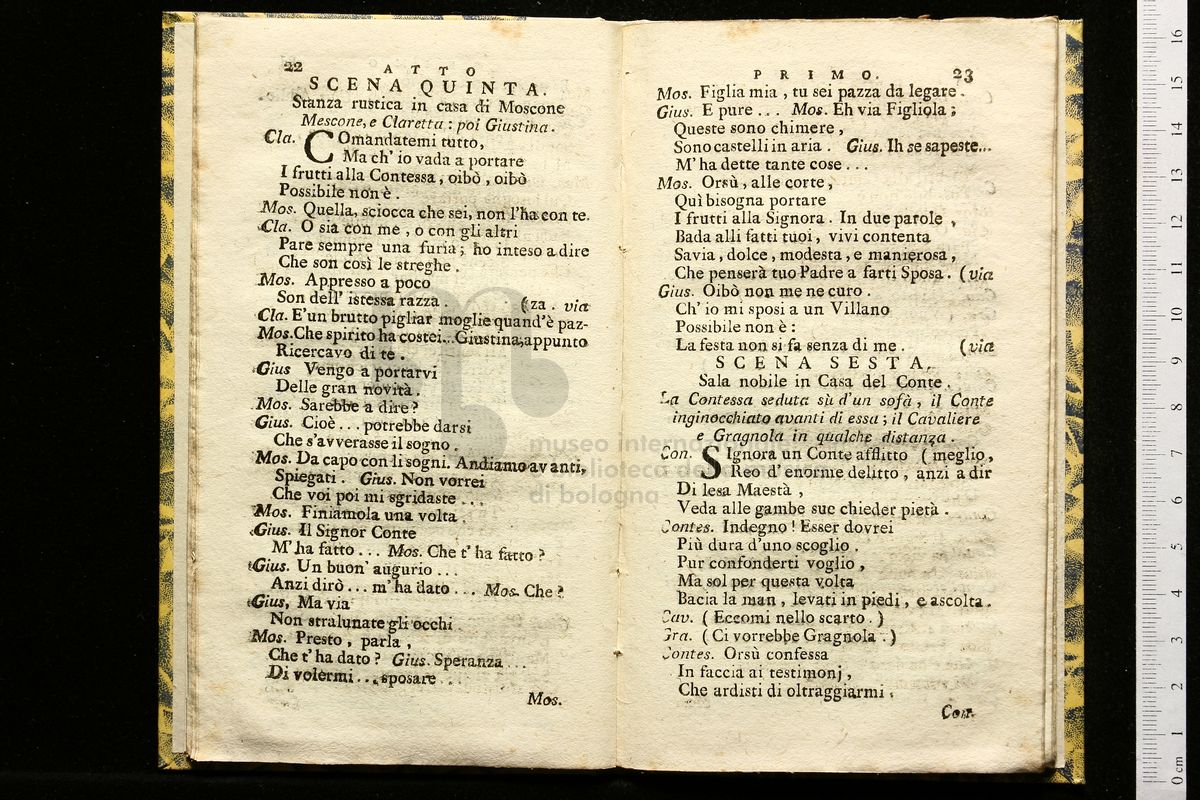 22
ATTO
SCENA QUINTA.
Stanza rustica in casa di Moscone
Mescone, e Claretta : poi Giustina.
Cla. COmandatemi tutto,
Ma ch' io vada a portare
I frutti alla Contessa, oibò, oibò
Possibile non è.
Mos. Quella, sciocca che sei, non l'ha con te.
Cla. O sia con me, o con gli altri
Pare sempre una furia; ho inteso a dire
Che son così le streghe.
Mos. Appresso a poco
Son dell' istessa razza. (za. via
Cla. E'un brutto pigliar moglie quand'è paz-
Mos. Che spirito ha costei... Giustina, appunto
Ricercavo di te.
Gius Vengo a portarvi
Delle gran novità.
Mos. Sarebbe a dire?
Gius. Cioè... potrebbe darsi
Che s'avverasse il sogno.
Mos. Da capo con li sogni. Andiamo avanti,
Spiegati. Gius. Non vorrei
Che voi poi mi sgridaste...
Mos. Finiamola una volta.
Gius. Il Signor Conte
M'ha fatto... Mos. Che t'ha fatto?
Gius. Un buon' augurio...
Anzi dirò... m'ha dato... Mos. Che?
Gius, Ma via
Non stralunate gli occhi
Mos. Presto, parla,
Che t'ha dato? Gius. Speranza...
Di volermi... sposare...
Mos.
PRIMO.
23
Mos. Figlia mia, tu sei pazza da legare.
Gius. E pure... Mos. Eh via Figliola;
Queste sono chimere,
Sono castelli in aria. Gius. Ih se sapeste...
M'ha dette tante cose...
Mos. Orsù, alle corte,
Quì bisogna portare
I frutti alla Signora. In due parole,
Bada alli fatti tuoi, vivi contenta
Savia, dolce, modesta, e manierosa,
Che penserà tuo Padre a farti Sposa. (via
Gius. Oibò non me ne curo.
Ch' io mi sposi a un Villano
Possibile non è:
La festa non si fa senza di me. (via
SCENA SESTA.
Sala nobile in Casa del Conte.
La Contessa seduta sù d'un sofà, il Conte
inginocchiato avanti di essa; il Cavaliere
e Gragnola in qualche distanza.
Con. SIgnora un Conte afflitto (meglio,
Reo d'enorme delitto, anzi a dir
Di lesa Maestà,
Veda alle gambe sue chieder pietà.
Contes. Indegno! Esser dovrei
Più dura d'uno scoglio,
Pur confonderti voglio,
Ma sol per questa volta
Bacia la man, levati in piedi, e ascolta.
Cav. (Eccomi nello scarto.)
Gra. (Ci vorrebbe Gragnola.)
Contes. Orsù confessa
In faccia ai testimonj,
Che ardisti di oltraggiarmi.
Con.
museo internazionale
biblioteca della
di bologna
0 cm 1 2 3 4 5 6 7 8 9 10 11 12 13 14 15 16